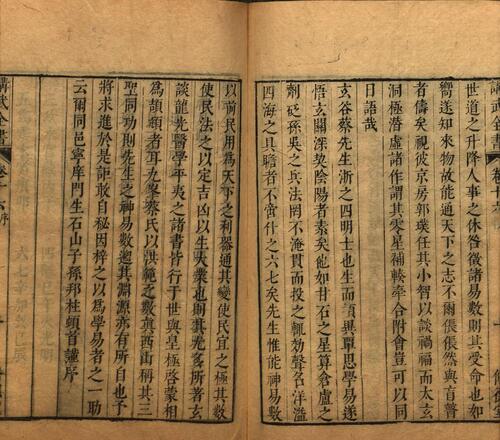 世道之升降人事之休咎質諸易數則其受命也如
嚮遂知來物故能通天下之志不爾倀倀然與盲瞽
者儔矣視彼京房郭璞任其小智以談禍福而太玄
洞極潛虛諸作謂其零星補輳牽合附會豈可以同
日語哉
玄谷蔡先生浙之四明士也生而頴異覃思學易遂
悟玄關深契陰陽者素矣他如甘石之星算倉盧之
劑砭孫吳之兵法罔不淹貫而投之輒効聲名洋溢
四海之具瞻者不啻什之六七矣先生惟能神易數
以前民用爲天下之利器通其變使民宜之極其數
使民法之以定吉凶以生大業也則其尤多所著玄
談龍光醫學平夷之諸書皆行于世與皇極啓蒙相
爲頡頏者耳九峯蔡氏以洪範之數眞西山稱其三
聖同功則先生之神易數遡其淵源亦有所自也予
將求進於是詎敢自秘因梓之以爲學易者之一助
云爾同邑寧庠門生石山子孫邦柱頓首謹序
講武全書